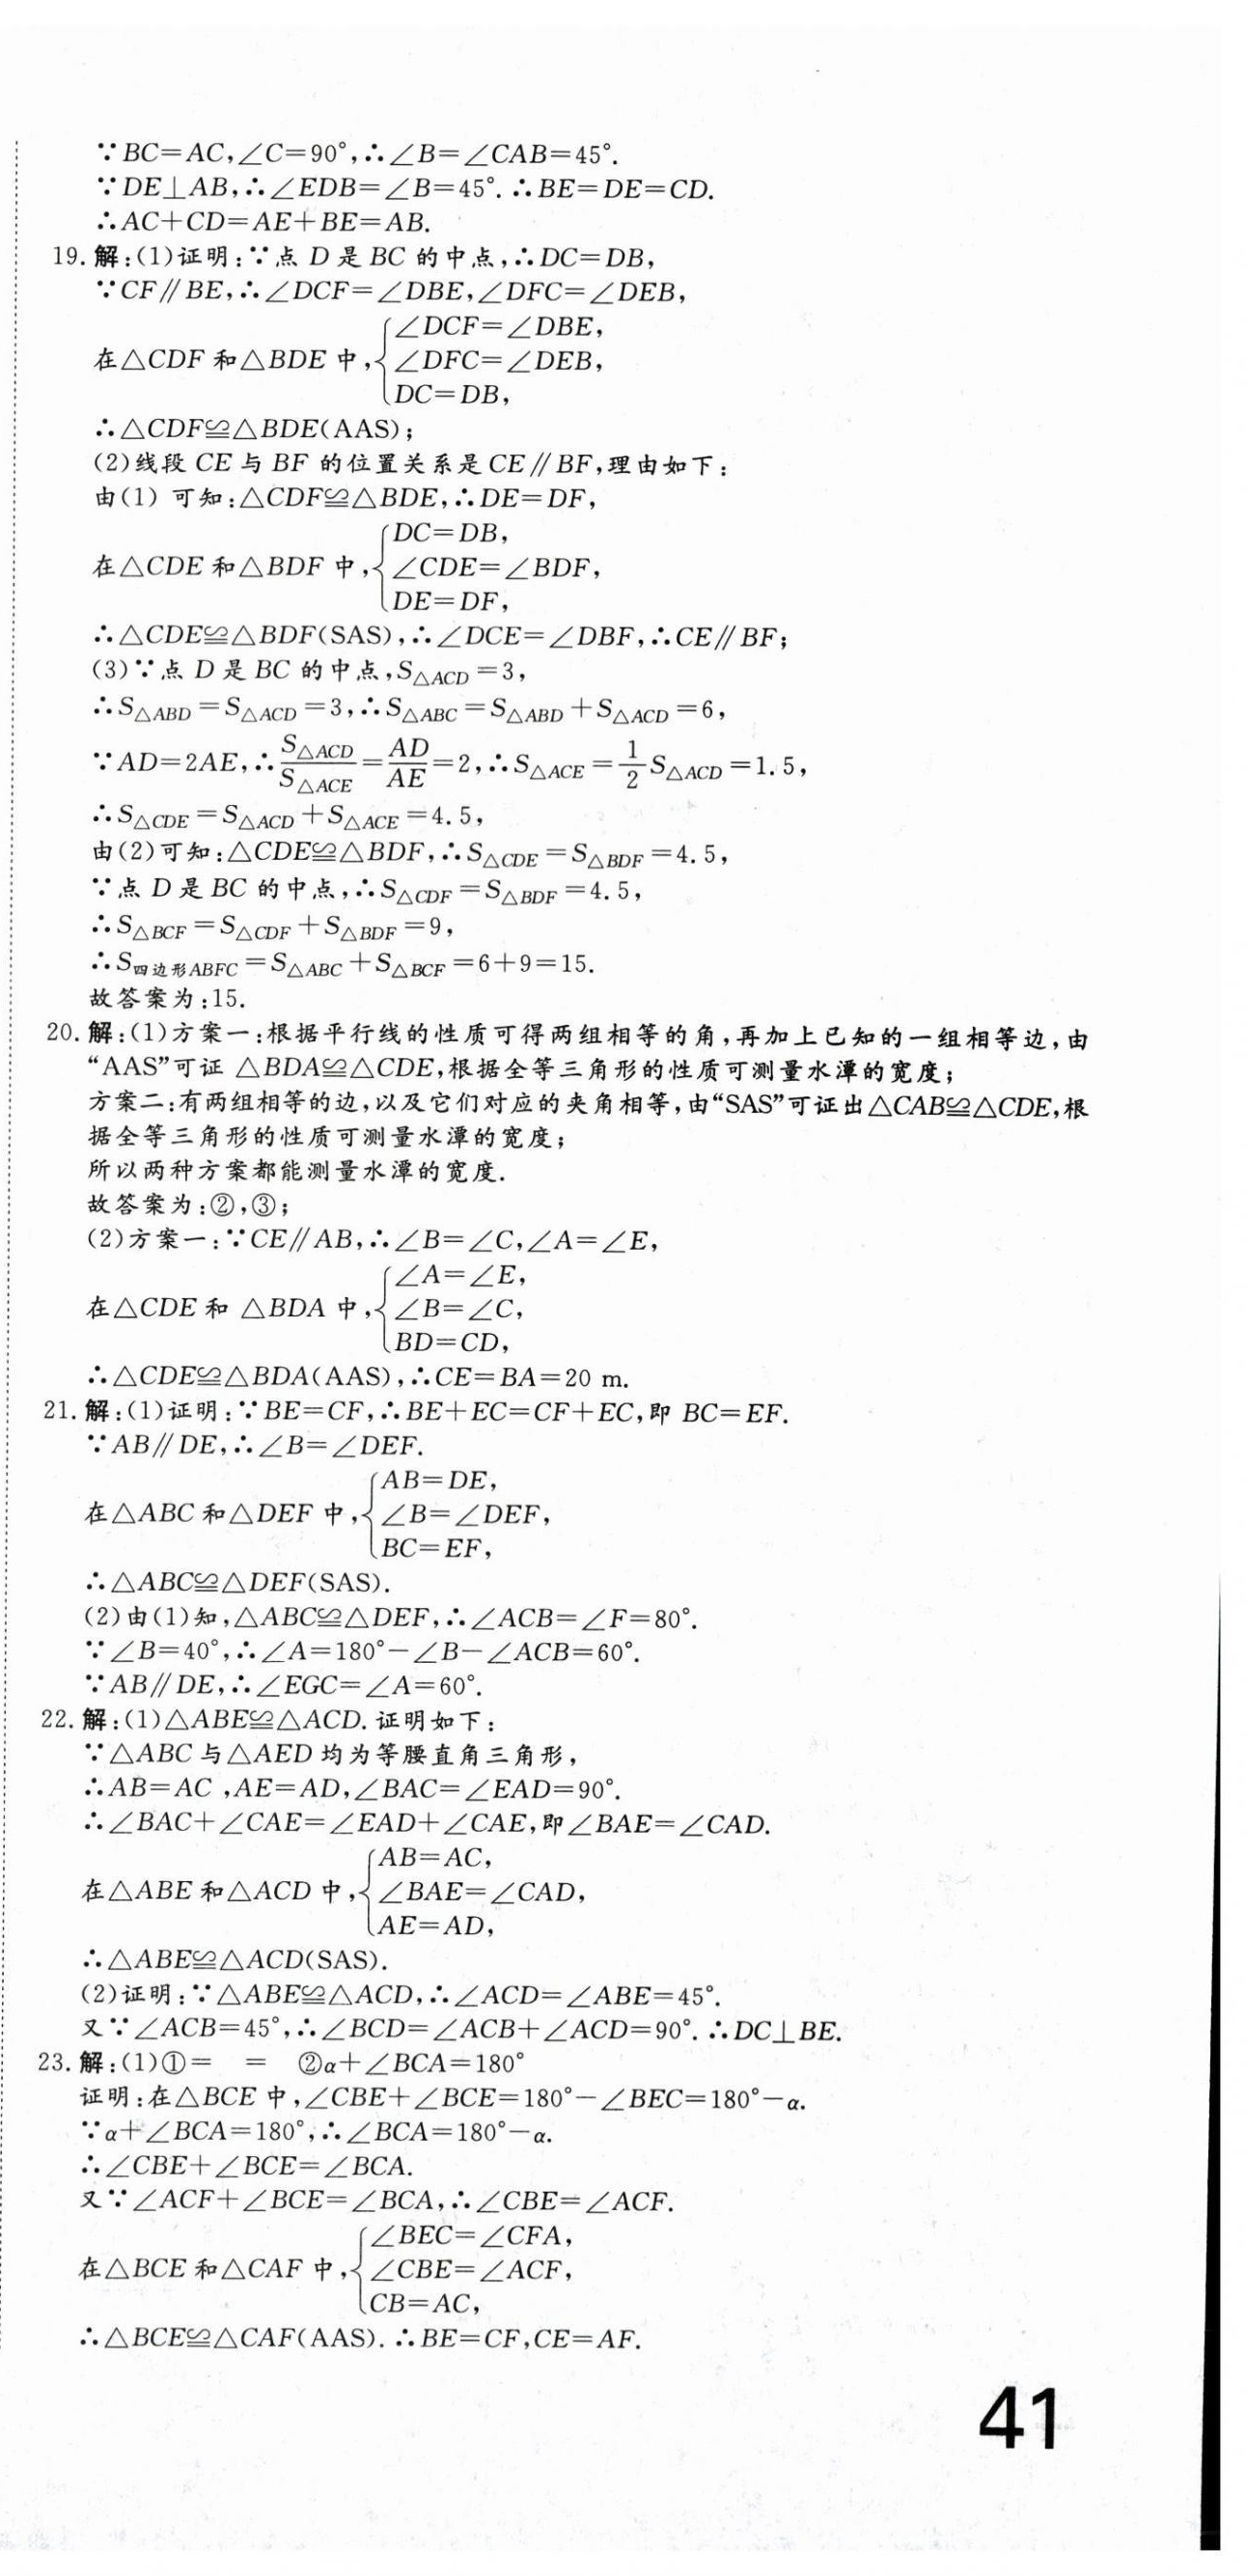 ∵BC=AC,∠C=90°,∴∠B=∠CAB=45°.
∵DE⊥AB,∴∠EDB=∠B=45°.∴BE=DE=CD.
∴AC+CD=AE+BE=AB.
19.解:(1)证明:∵点 D 是 BC 的中点,∴DC=DB,
∵CF∥BE,∴∠DCF=∠DBE,∠DFC=∠DEB,
∠DCF=∠DBE,
在△CDF 和△BDE 中,{∠DFC=∠DEB,
DC=DB,
∴△CDF≌△BDE(AAS);
(2)线段 CE 与 BF 的位置关系是 CE∥BF,理由如下:
由(1) 可知:△CDF≌△BDE,∴DE=DF,
DC=DB,
在△CDE 和△BDF 中,{∠CDE=∠BDF,
DE=DF,
∴△CDE≌△BDF(SAS),∴∠DCE=∠DBF,∴CE∥BF;
(3)∵点 D 是 BC 的中点,S△ACD=3,
∴S△ABD=S△ACD=3,∴S△ABC=S△ABD+S△ACD=6,
∵AD=2AE,∴S△ACD/S△ACE=AD/AE=2,∴S△ACE=1/2S△ACD=1.5,
∴S△CDE=S△ACD+S△ACE=4.5,
由(2)可知:△CDE≌△BDF,∴S△CDE=S△BDF=4.5,
∵点 D 是 BC 的中点,∴S△CDF=S△BDF=4.5,
∴S△BCF=S△CDF+S△BDF=9,
∴S四边形ABFC=S△ABC+S△BCF=6+9=15.
故答案为:15.
20.解:(1)方案一:根据平行线的性质可得两组相等的角,再加上已知的一组相等边,由
“AAS”可证 △BDA≌△CDE,根据全等三角形的性质可测量水潭的宽度;
方案二:有两组相等的边,以及它们对应的夹角相等,由“SAS”可证出△CAB≌△CDE,根
据全等三角形的性质可测量水潭的宽度;
所以两种方案都能测量水潭的宽度.
故答案为:②,③;
(2)方案一:∵CE∥AB,∴∠B=∠C,∠A=∠E,
∠A=∠E,
在△CDE 和 △BDA 中,{∠B=∠C,
BD=CD,
∴△CDE≌△BDA(AAS),∴CE=BA=20 m.
21.解:(1)证明:∵BE=CF,∴BE+EC=CF+EC,即 BC=EF.
∵AB∥DE,∴∠B=∠DEF.
AB=DE,
在△ABC 和△DEF 中,{∠B=∠DEF,
BC=EF,
∴△ABC≌△DEF(SAS).
(2)由(1)知,△ABC≌△DEF,∴∠ACB=∠F=80°.
∵∠B=40°,∴∠A=180°-∠B-∠ACB=60°.
∵AB∥DE,∴∠EGC=∠A=60°.
22.解:(1)△ABE≌△ACD.证明如下:
∵△ABC 与△AED 均为等腰直角三角形,
∴AB=AC ,AE=AD,∠BAC=∠EAD=90°.
∴∠BAC+∠CAE=∠EAD+∠CAE,即∠BAE=∠CAD.
AB=AC,
在△ABE 和△ACD 中,{∠BAE=∠CAD,
AE=AD,
∴△ABE≌△ACD(SAS).
(2)证明:∵△ABE≌△ACD,∴∠ACD=∠ABE=45°.
又∵∠ACB=45°,∴∠BCD=∠ACB+∠ACD=90°.∴DC⊥BE.
23.解:(1)①= = ②α+∠BCA=180°
证明:在△BCE 中,∠CBE+∠BCE=180°-∠BEC=180°-α.
∵α+∠BCA=180°,∴∠BCA=180°-α.
∴∠CBE+∠BCE=∠BCA.
又∵∠ACF+∠BCE=∠BCA,∴∠CBE=∠ACF.
∠BEC=∠CFA,
在△BCE 和△CAF 中,{∠CBE=∠ACF,
CB=AC,
∴△BCE≌△CAF(AAS).∴BE=CF,CE=AF.
41